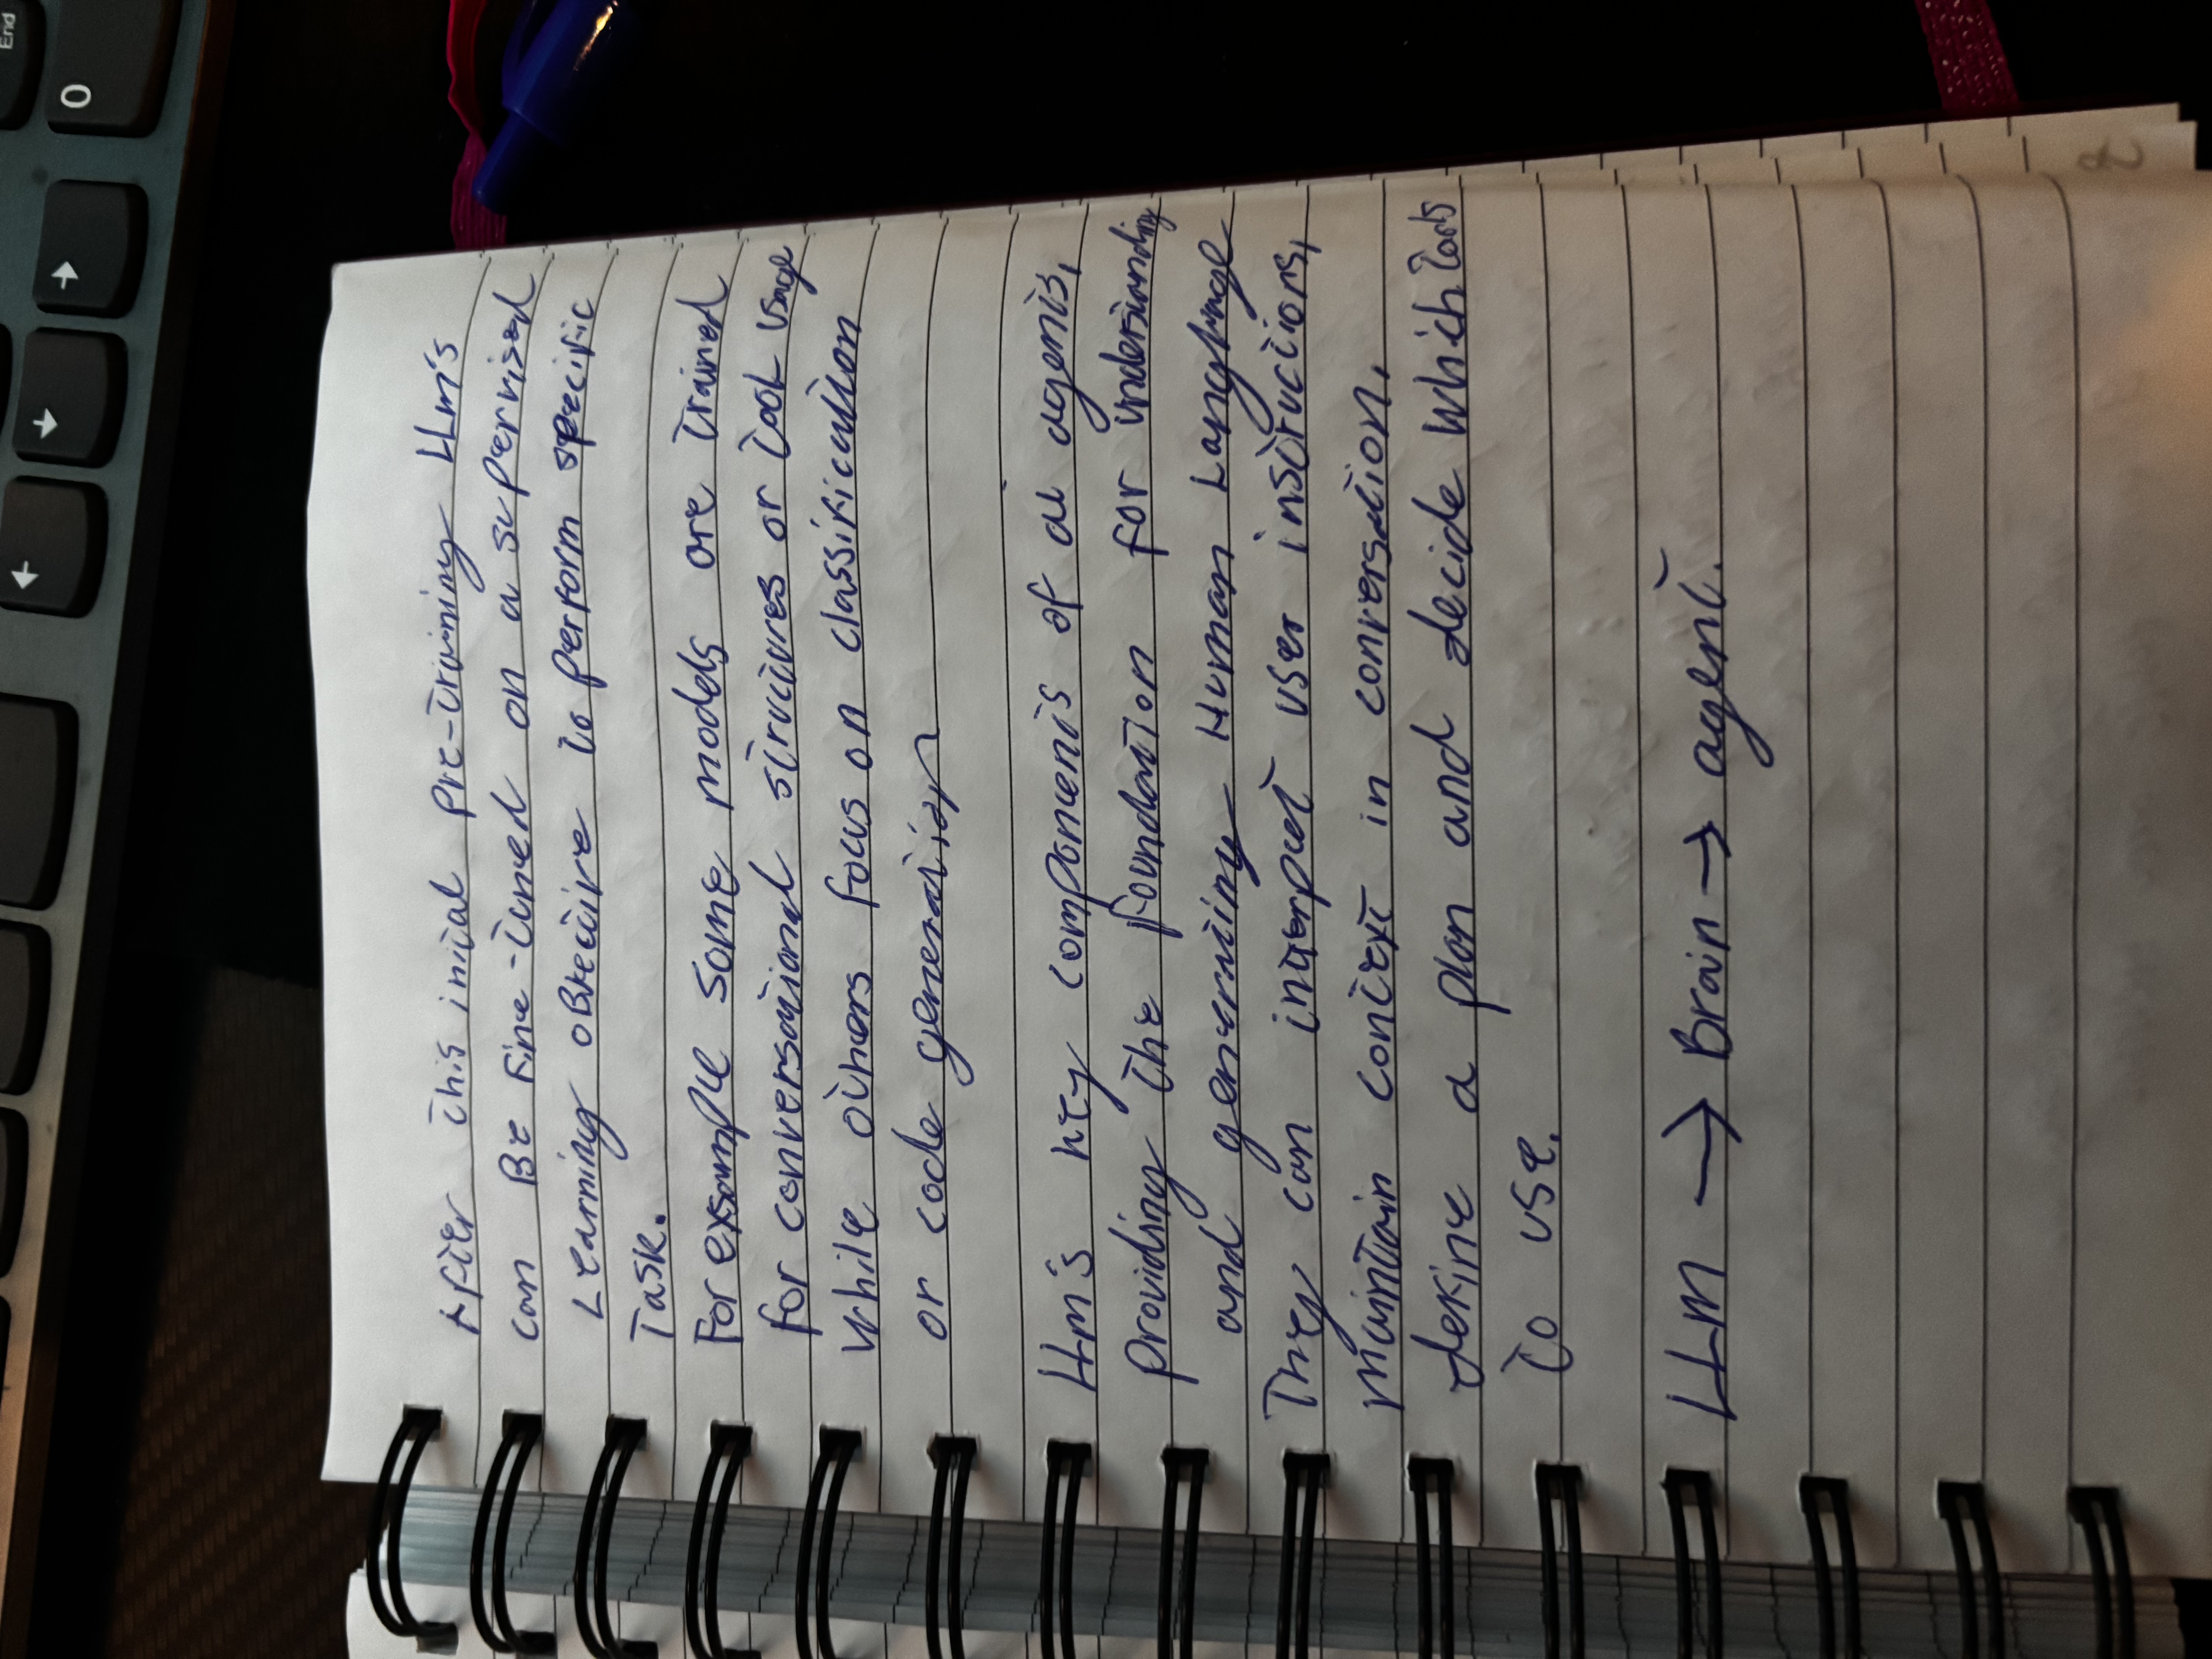 End
← ↓ → 0
After this inital pre-training LLm's
can Be Fine-tuned on a supervised
Learning objective to perform specific
Task.
For exsample some models are trained
for conversational structures or tool usage
while others focus on classification
or code generation
LLm's key components of ai agents,
providing the foundation for understanding
and generating Human Language
They can interpret user instructions,
maintain context in conversation,
define a plan and decide which tools
to use.
LLm → Brain → agent.